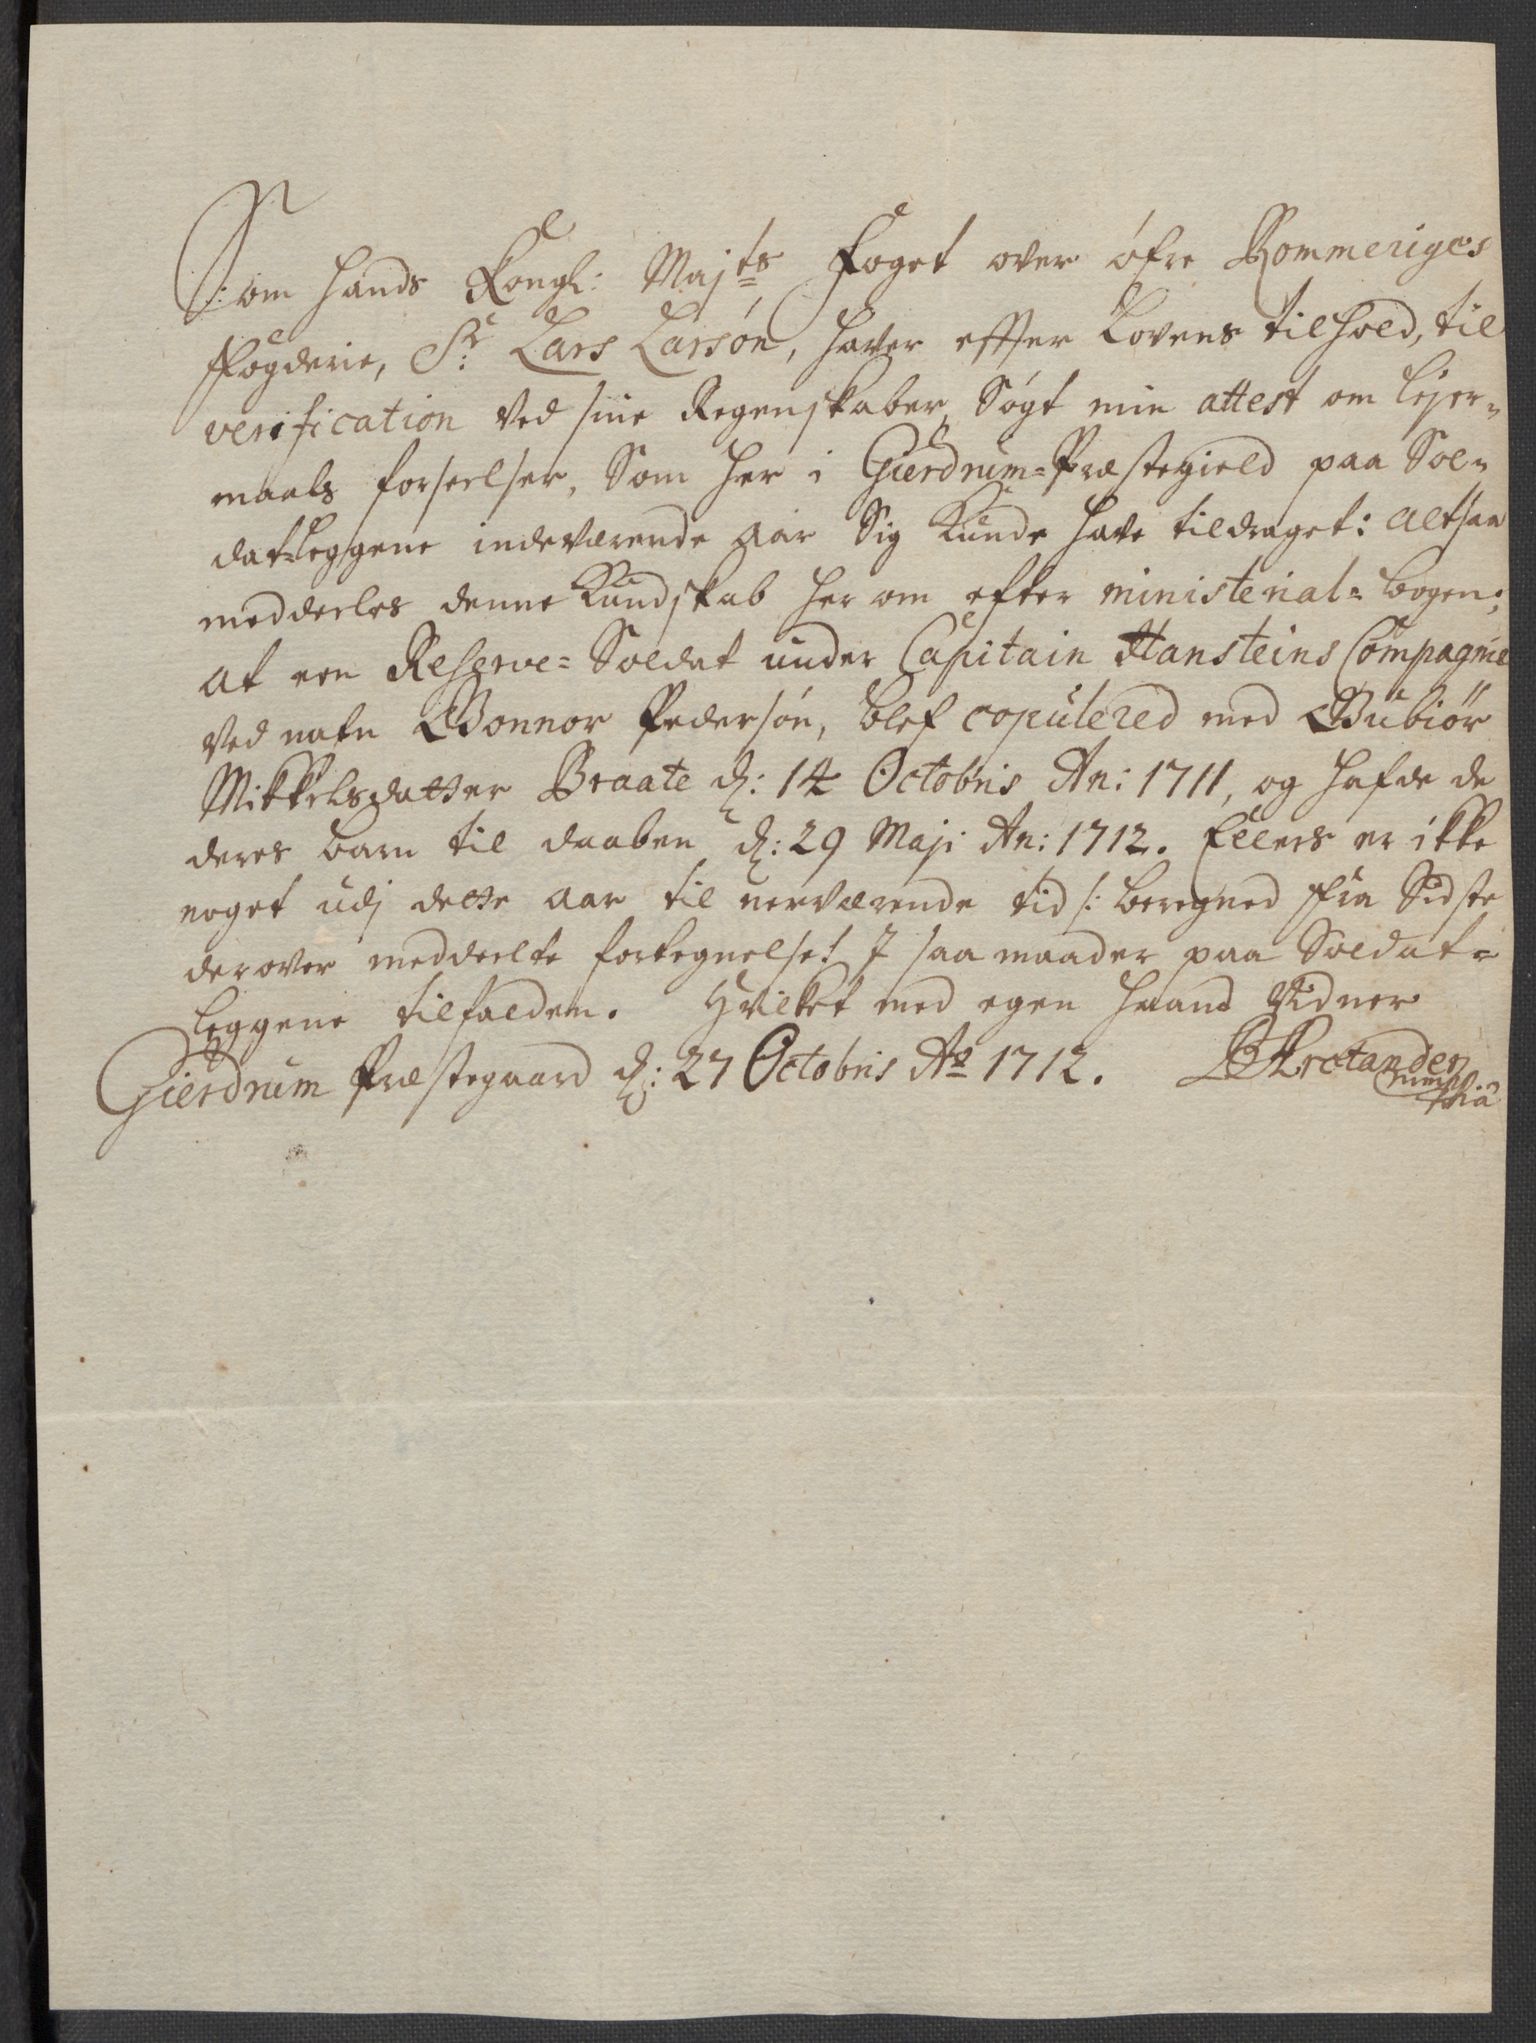 Som hands Kongl: Majts Foget over øfre Rommeriges
Fogderie, Sr: Lars Larsøn, haver effter Lovens tilhold, til
verification ved sine Regenskaber, Søgt min attest om lejer=
maals forseelser, Som her i Gierdrum=Præstegield paa Sol=
datleggene indeværende aar Sig Kunde have tildraget: altsaa
meddeeles denne Kundskab her om efter ministerial=bogen;
at een Reserve=Soldat under Capitain Hansteins Compagnie
ved nafn Gonnor Pedersøn, blef copulered med Gubiør
Mikkelsdatter Braate d: 14 Octobris An: 1711, og hafde de
deres barn til daaben d: 29 Maji An: 1712. Ellers er ikke
noget udj dette aar til nerværende tid /: beregned fra Sidste
derover meddeelte fortegnelse :/ I saa maader paa Soldat=
leggene tilfalden. Hvilket med egen haand Vidner
Gierdrum Præstegaard d: 27 Octobris Ao 1712. Arctander